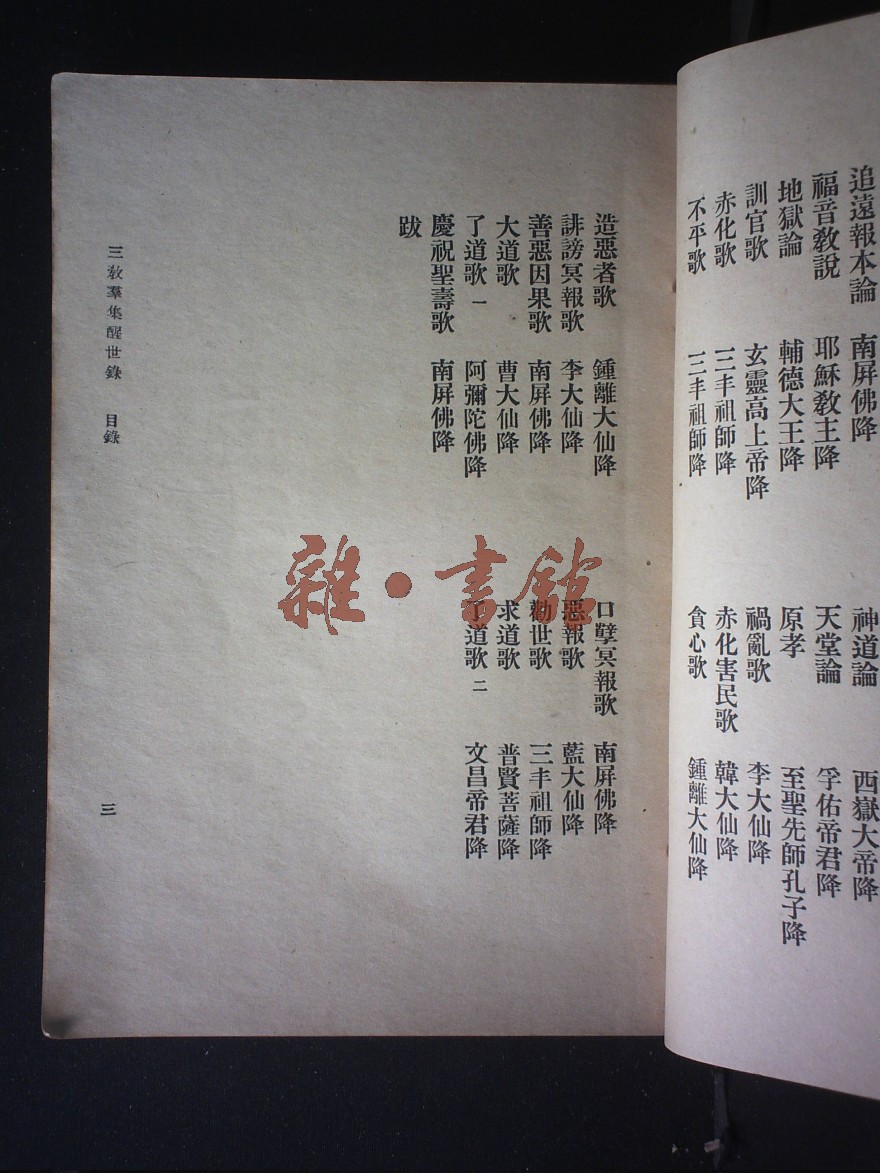 追遠報本論　南屏佛降　神道論　西嶽大帝降
福音教說　耶穌教主降　天堂論　孚佑帝君降
地獄論　輔德大王降　原孝　至聖先師孔子降
訓官歌　玄靈高上帝降　禍亂歌　李大仙降
赤化歌　三丰祖師降　赤化害民歌　韓大仙降
不平歌　三丰祖師降　貪心歌　鍾離大仙降
造惡者歌　鍾離大仙降　口孽冥報歌　南屏佛降
誹謗冥報歌　李大仙降　惡報歌　藍大仙降
善惡因果歌　南屏佛降　勸世歌　三丰祖師降
大道歌　曹大仙降　求道歌　普賢菩薩降
了道歌 一　阿彌陀佛降　了道歌 二　文昌帝君降
慶祝聖壽歌　南屏佛降
跋
三教羣集醒世錄　目錄　三
雜·書館